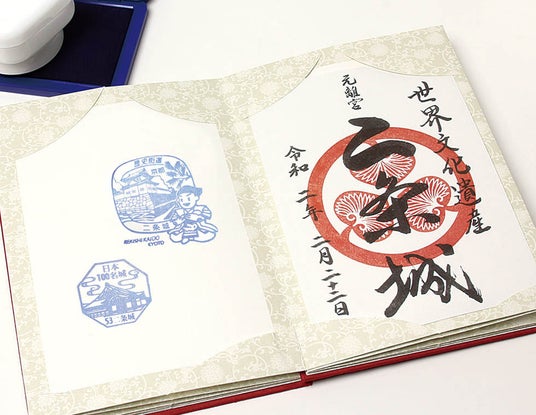 歴史街道
京都
二条城
REKISHI KAIDO
KYOTO
日本
100名城
53 二条城
世界文化遺産
元離宮
二条城
令和二年二月二十二日